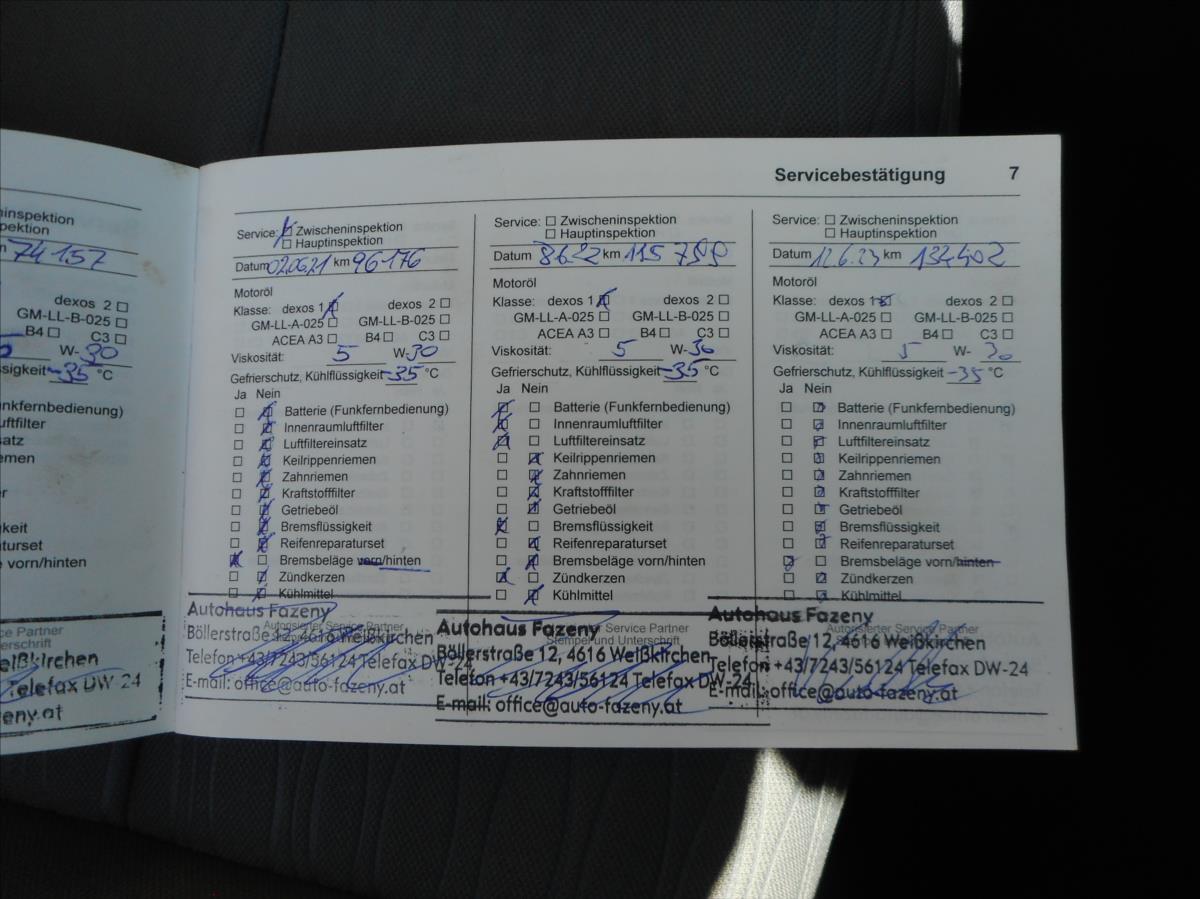 Servicebestätigung 7
ninspektion
pektion
74157
dexos 2
GM-LL-B-025
B4 C3
W-30
ssigkeit -35 °C
nkfernbedienung)
tfilter
satz
emen
er
gkeit
aturset
e vorn/hinten
ce Partner
erschrift
eißkirchen
Telefax DW-24
zeny.at
Service: Zwischeninspektion
Hauptinspektion
Datum 02.06.21 km 96176
Motoröl
Klasse: dexos 1 dexos 2
GM-LL-A-025 GM-LL-B-025
ACEA A3 B4 C3
Viskosität: 5 W-30
Gefrierschutz, Kühlflüssigkeit -35 °C
Ja Nein
Batterie (Funkfernbedienung)
Innenraumluftfilter
Luftfiltereinsatz
Keilrippenriemen
Zahnriemen
Kraftstofffilter
Getriebeöl
Bremsflüssigkeit
Reifenreparaturset
Bremsbeläge vorn/hinten
Zündkerzen
Kühlmittel
Autorisierter Service Partner
Autohaus Fazeny
Böllerstraße 12, 4616 Weißkirchen
Telefon +43/7243/56124 Telefax DW-24
E-mail: office@auto-fazeny.at
Service: Zwischeninspektion
Hauptinspektion
Datum 8.6.22 km 115 799
Motoröl
Klasse: dexos 1 dexos 2
GM-LL-A-025 GM-LL-B-025
ACEA A3 B4 C3
Viskosität: 5 W-30
Gefrierschutz, Kühlflüssigkeit -35 °C
Ja Nein
Batterie (Funkfernbedienung)
Innenraumluftfilter
Luftfiltereinsatz
Keilrippenriemen
Zahnriemen
Kraftstofffilter
Getriebeöl
Bremsflüssigkeit
Reifenreparaturset
Bremsbeläge vorn/hinten
Zündkerzen
Kühlmittel
Service Partner
Stempel und Unterschrift
Autohaus Fazeny
Böllerstraße 12, 4616 Weißkirchen
Telefon +43/7243/56124 Telefax DW-24
E-mail: office@auto-fazeny.at
Service: Zwischeninspektion
Hauptinspektion
Datum 12.6.23 km 132402
Motoröl
Klasse: dexos 1 dexos 2
GM-LL-A-025 GM-LL-B-025
ACEA A3 B4 C3
Viskosität: 5 W-30
Gefrierschutz, Kühlflüssigkeit -35 °C
Ja Nein
Batterie (Funkfernbedienung)
Innenraumluftfilter
Luftfiltereinsatz
Keilrippenriemen
Zahnriemen
Kraftstofffilter
Getriebeöl
Bremsflüssigkeit
Reifenreparaturset
Bremsbeläge vorn/hinten
Zündkerzen
Kühlmittel
Autorisierter Service Partner
Autohaus Fazeny
Böllerstraße 12, 4616 Weißkirchen
Telefon +43/7243/56124 Telefax DW-24
E-mail: office@auto-fazeny.at